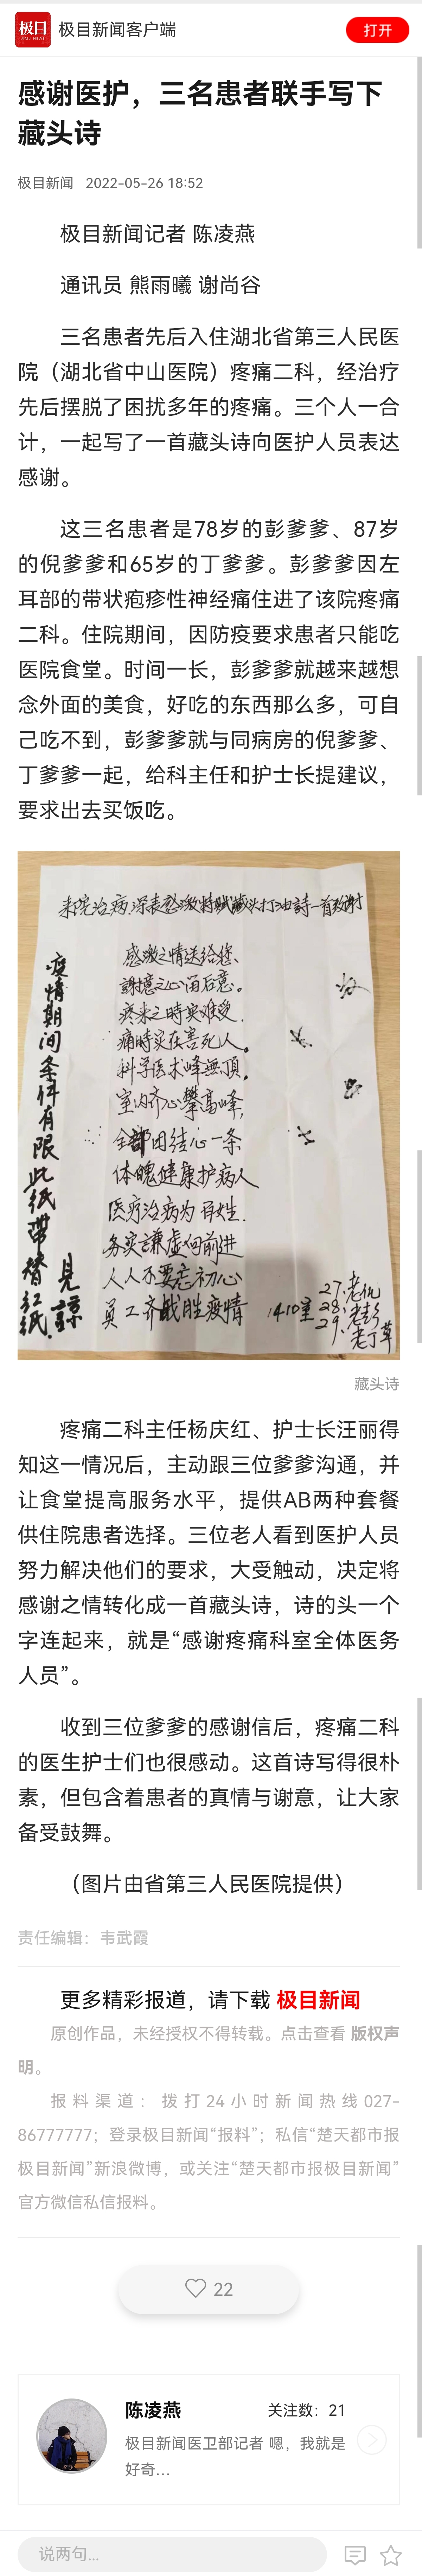 极目
极目新闻客户端
打开
感谢医护，三名患者联手写下
藏头诗
极目新闻 2022-05-26 18:52
极目新闻记者 陈凌燕
通讯员 熊雨曦 谢尚谷
三名患者先后入住湖北省第三人民医
院（湖北省中山医院）疼痛二科，经治疗
先后摆脱了困扰多年的疼痛。三个人一合
计，一起写了一首藏头诗向医护人员表达
感谢。
这三名患者是78岁的彭爹爹、87岁
的倪爹爹和65岁的丁爹爹。彭爹爹因左
耳部的带状疱疹性神经痛住进了该院疼痛
二科。住院期间，因防疫要求患者只能吃
医院食堂。时间一长，彭爹爹就越来越想
念外面的美食，好吃的东西那么多，可自
己吃不到，彭爹爹就与同病房的倪爹爹、
丁爹爹一起，给科主任和护士长提建议，
要求出去买饭吃。
来院治病深表感激特赋藏头打油詩一首致谢
感激之情送给您、
謝意之心留后意。
疼来之时实难受、
痛時实在害死人。
科学医术峰無頂，
室内齐心攀高峰，
全部团结心一条
体魄健康护病人
医疗治病为百姓.
务实謙虚向前进
人人不要忘初心
員工齐战胜疫情
1410室
27.老倪
28.老彭
29.老丁
疫情期间条件有限此纸带替红纸.
見諒
藏头诗
疼痛二科主任杨庆红、护士长汪丽得
知这一情况后，主动跟三位爹爹沟通，并
让食堂提高服务水平，提供AB两种套餐
供住院患者选择。三位老人看到医护人员
努力解决他们的要求，大受触动，决定将
感谢之情转化成一首藏头诗，诗的头一个
字连起来，就是“感谢疼痛科室全体医务
人员”。
收到三位爹爹的感谢信后，疼痛二科
的医生护士们也很感动。这首诗写得很朴
素，但包含着患者的真情与谢意，让大家
备受鼓舞。
（图片由省第三人民医院提供）
责任编辑：韦武霞
更多精彩报道，请下载 极目新闻
原创作品，未经授权不得转载。点击查看 版权声
明。
报料渠道：拨打24小时新闻热线027-
86777777；登录极目新闻“报料”；私信“楚天都市报
极目新闻”新浪微博，或关注“楚天都市报极目新闻”
官方微信私信报料。
22
陈凌燕
关注数：21
极目新闻医卫部记者 嗯，我就是
好奇...
说两句...